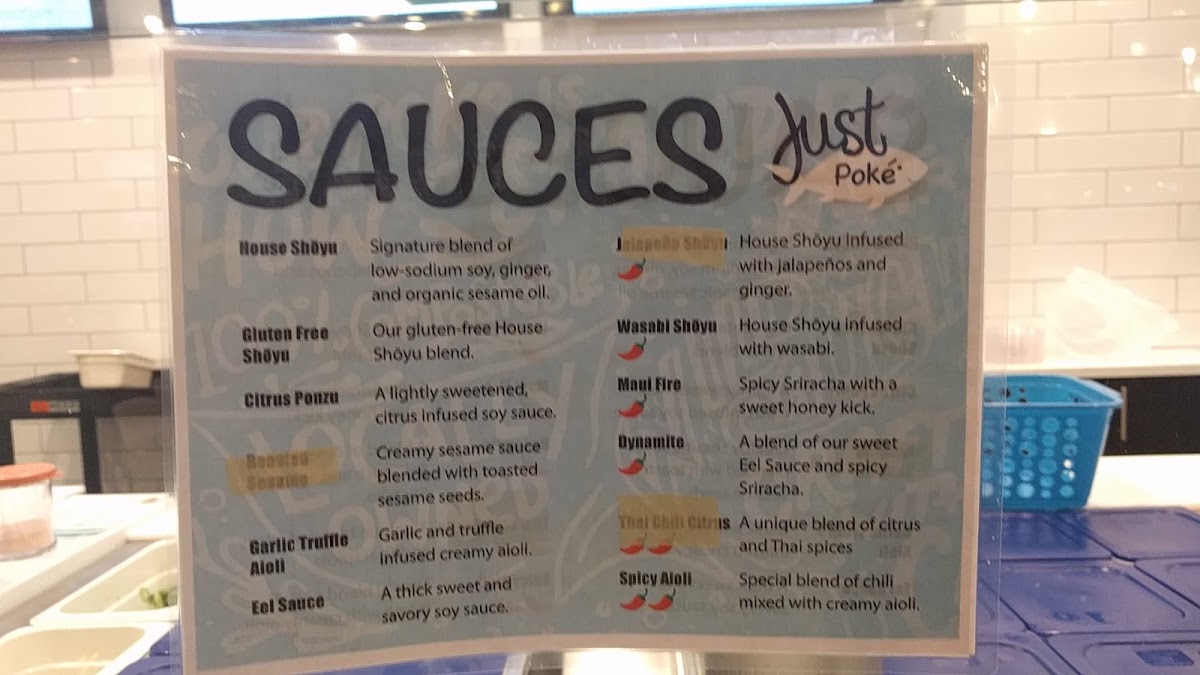 SAUCES
Just
Poké
House Shōyu
Signature blend of
low-sodium soy, ginger,
and organic sesame oil.
Gluten Free
Shōyu
Our gluten-free House
Shōyu blend.
Citrus Ponzu
A lightly sweetened,
citrus infused soy sauce.
Roasted
Sesame
Creamy sesame sauce
blended with toasted
sesame seeds.
Garlic Truffle
Aioli
Garlic and truffle
infused creamy aioli.
Eel Sauce
A thick sweet and
savory soy sauce.
Jalapeño Shōyu
House Shōyu infused
with jalapeños and
ginger.
Wasabi Shōyu
House Shōyu infused
with wasabi.
Maui Fire
Spicy Sriracha with a
sweet honey kick.
Dynamite
A blend of our sweet
Eel Sauce and spicy
Sriracha.
Thai Chili Citrus
A unique blend of citrus
and Thai spices
Spicy Aioli
Special blend of chili
mixed with creamy aioli.